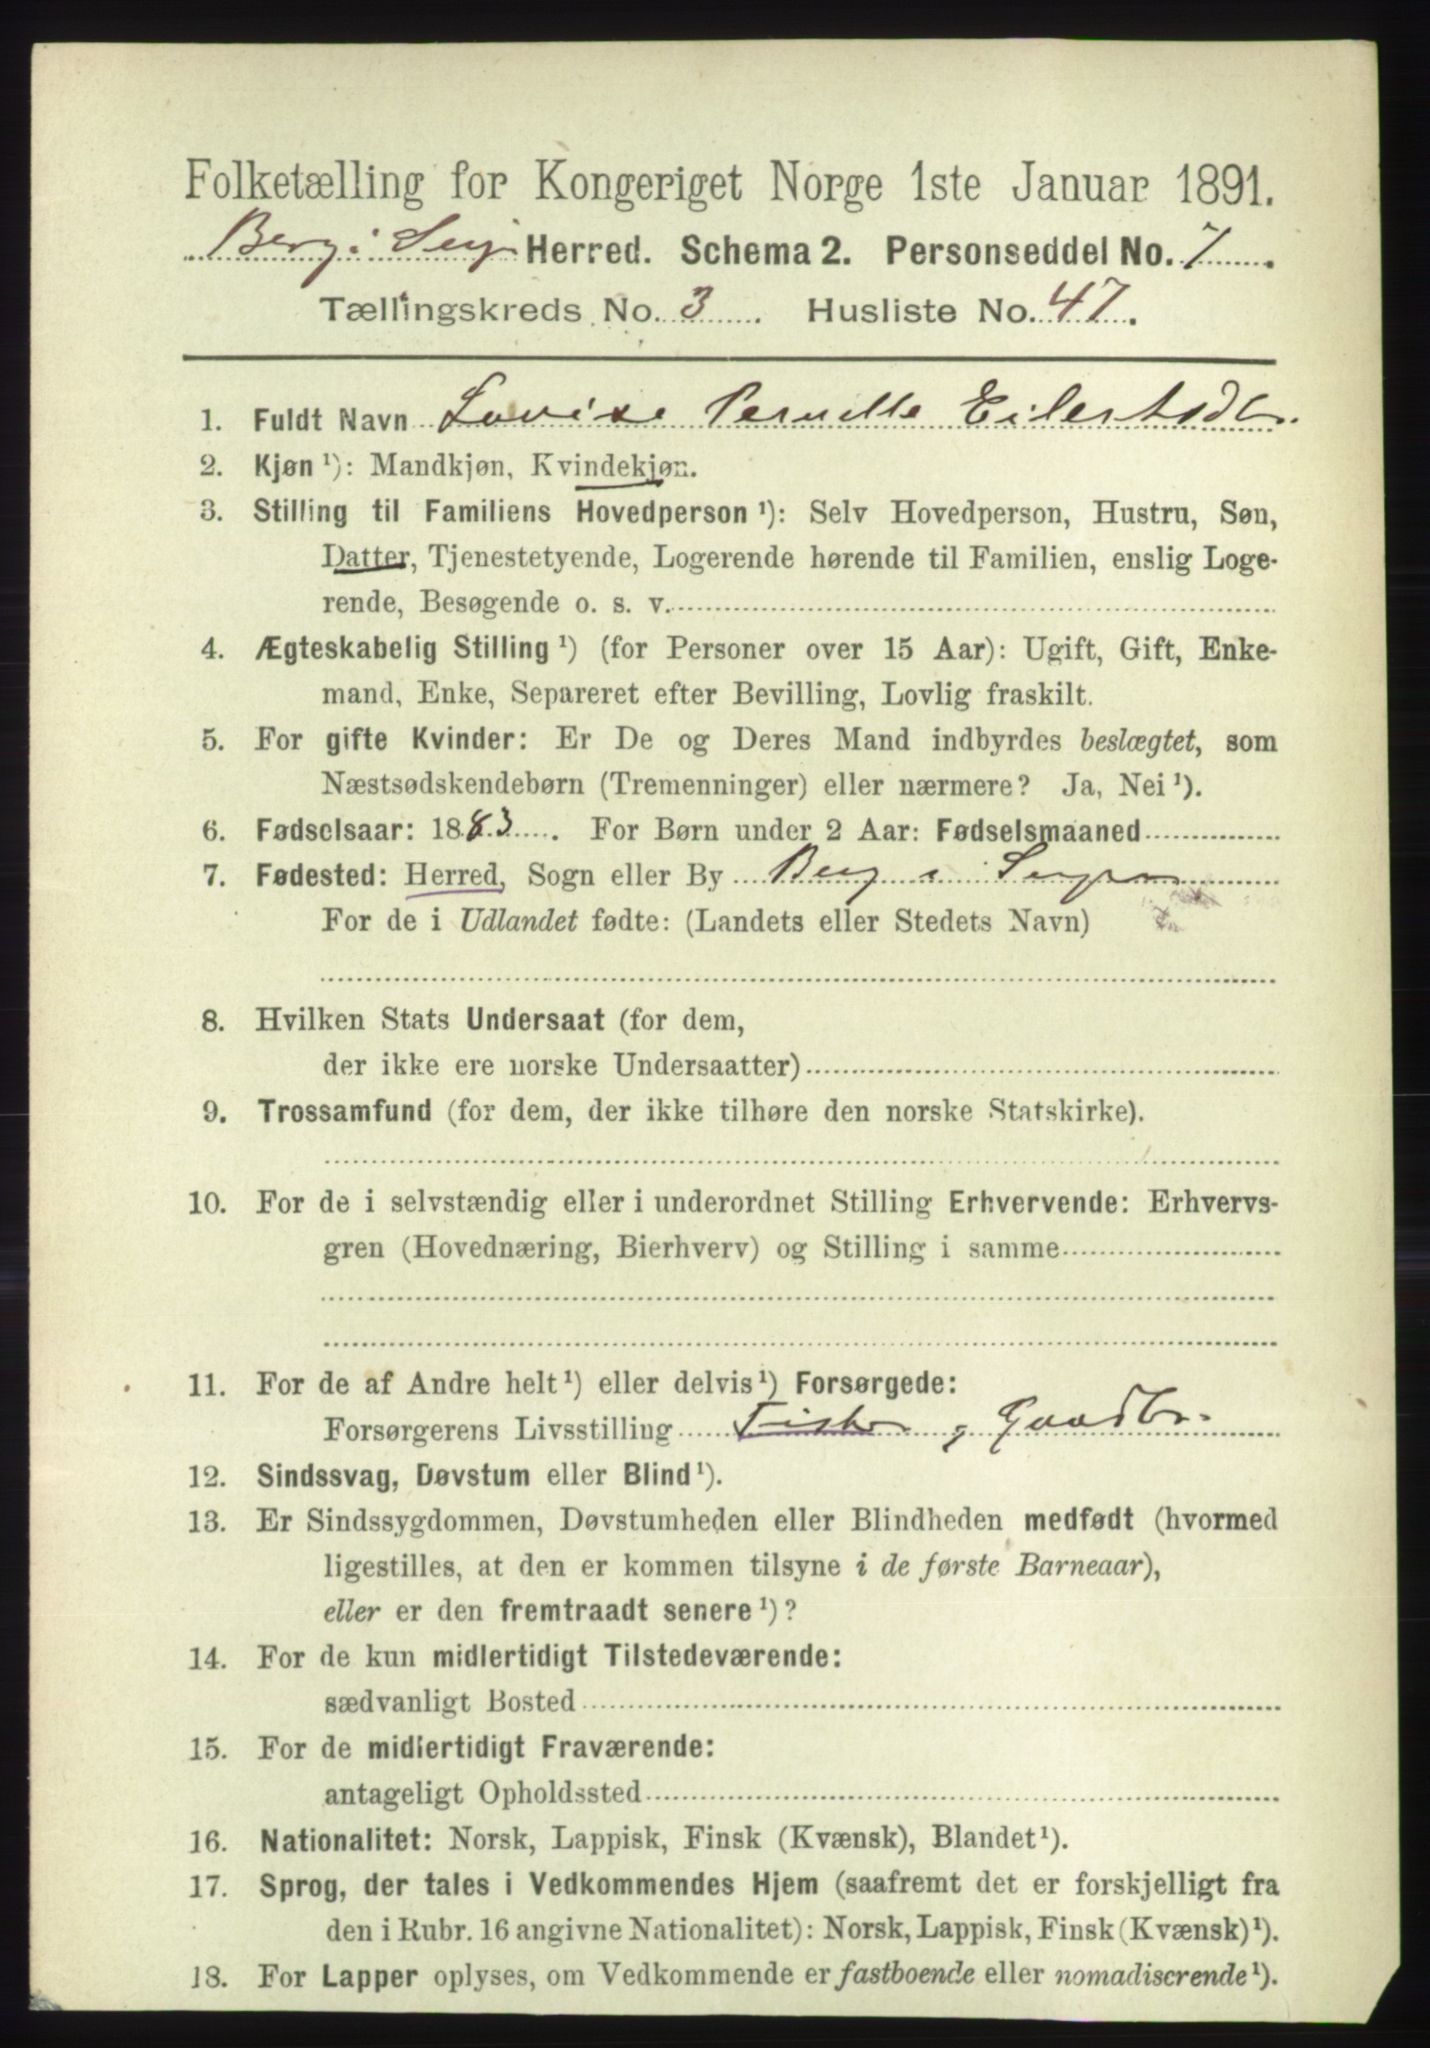 Folketælling for Kongeriget Norge 1ste Januar 1891.
Berg i Senjen Herred. Schema 2. Personseddel No. 7.
Tællingskreds No. 3. Husliste No. 47.
1. Fuldt Navn Lovise Pernille Eilertsdtr.
2. Kjøn ¹): Mandkjøn, Kvindekjøn.
3. Stilling til Familiens Hovedperson ¹): Selv Hovedperson, Hustru, Søn,
Datter, Tjenestetyende, Logerende hørende til Familien, enslig Loge-
rende, Besøgende o. s. v.
4. Ægteskabelig Stilling ¹) (for Personer over 15 Aar): Ugift, Gift, Enke-
mand, Enke, Separeret efter Bevilling, Lovlig fraskilt.
5. For gifte Kvinder: Er De og Deres Mand indbyrdes beslægtet, som
Næstsødskendebørn (Tremenninger) eller nærmere? Ja, Nei ¹).
6. Fødselsaar: 1883. For Børn under 2 Aar: Fødselsmaaned
7. Fødested: Herred, Sogn eller By Berg i Senjen
For de i Udlandet fødte: (Landets eller Stedets Navn)
8. Hvilken Stats Undersaat (for dem,
der ikke ere norske Undersaatter)
9. Trossamfund (for dem, der ikke tilhøre den norske Statskirke).
10. For de i selvstændig eller i underordnet Stilling Erhvervende: Erhvervs-
gren (Hovednæring, Bierhverv) og Stilling i samme
11. For de af Andre helt ¹) eller delvis ¹) Forsørgede:
Forsørgerens Livsstilling Fisker, Gaardbr.
12. Sindssvag, Døvstum eller Blind ¹).
13. Er Sindssygdommen, Døvstumheden eller Blindheden medfødt (hvormed
ligestilles, at den er kommen tilsyne i de første Barneaar),
eller er den fremtraadt senere ¹)?
14. For de kun midlertidigt Tilstedeværende:
sædvanligt Bosted
15. For de midlertidigt Fraværende:
antageligt Opholdssted
16. Nationalitet: Norsk, Lappisk, Finsk (Kvænsk), Blandet ¹).
17. Sprog, der tales i Vedkommendes Hjem (saafremt det er forskjelligt fra
den i Rubr. 16 angivne Nationalitet): Norsk, Lappisk, Finsk (Kvænsk) ¹).
18. For Lapper oplyses, om Vedkommende er fastboende eller nomadiserende ¹).